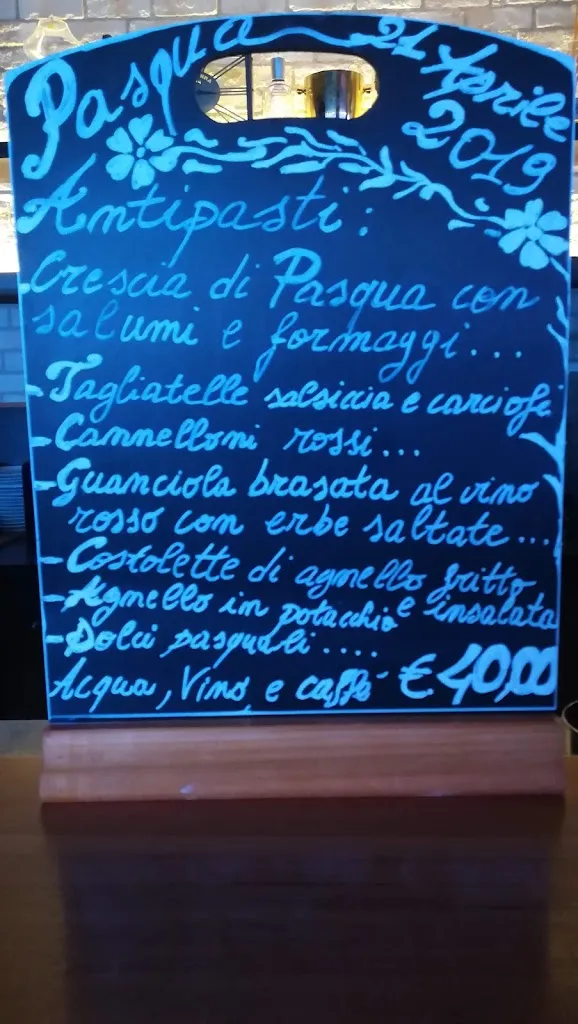 Pasqua 21 Aprile
2019
Antipasti:
-Crescia di Pasqua con
salumi e formaggi...
-Tagliatelle salsiccia e carciofi
-Cannelloni rossi...
-Guanciola brasata al vino
rosso con erbe saltate...
-Costolette di agnello fritto
-Agnello in potacchio e insalata
-Dolci pasquali....
Acqua, Vino, e caffè € 40,00